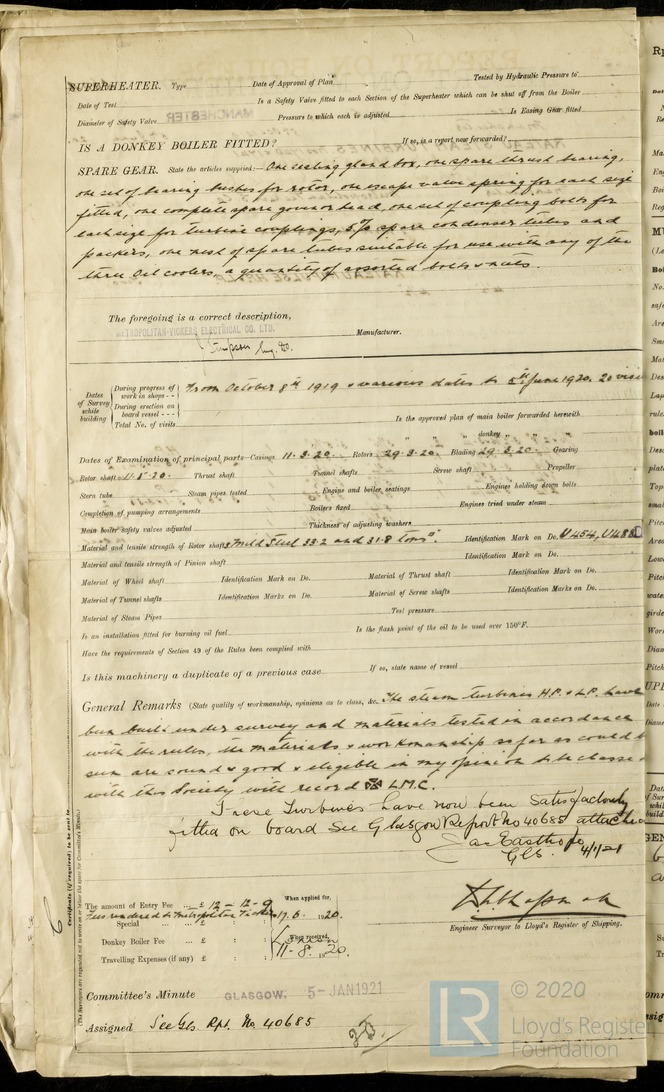 SUPERHEATER. Type Date of Approval of Plan Tested by Hydraulic Pressure to
Date of Test Is a Safety Valve fitted to each Section of the Superheater which can be shut off from the Boiler
Diameter of Safety Valve Pressure to which each is adjusted Is Easing Gear fitted
IS A DONKEY BOILER FITTED? If so, is a report now forwarded?
SPARE GEAR. State the articles supplied:— One casting gland box, one spare thrust bearing,
one set of bearing bushes for rotor, one escape valve spring for each size
fitted, one complete spare governor head, one set of coupling bolts for
each size for turbine couplings, 5% spare condenser tubes and
packers, one nest of spare tubes suitable for use with any of the
three Oil coolers, a quantity of assorted bolts & nuts.
The foregoing is a correct description,
METROPOLITAN-VICKERS ELECTRICAL CO. LTD.
Manufacturer.
Dates of Survey while building
During progress of work in shops - - From October 8th 1919 & various dates to 5th June 1920. 20 visi
During erection on board vessel - - -
Total No. of visits Is the approved plan of main boiler forwarded herewith
" " " donkey " " "
Dates of Examination of principal parts—Casings 11.3.20. Rotors 29.3.20. Blading 29.3.20. Gearing
Rotor shaft 11.5.20. Thrust shaft Tunnel shafts Screw shaft Propeller
Stern tube Steam pipes tested Engine and boiler seatings Engines holding down bolts
Completion of pumping arrangements Boilers fixed Engines tried under steam
Main boiler safety valves adjusted Thickness of adjusting washers
Material and tensile strength of Rotor shaft Mild Steel 33.2 and 31.8 tons □". Identification Mark on Do. V454, V48
Material and tensile strength of Pinion shaft Identification Mark on Do.
Material of Wheel shaft Identification Mark on Do. Material of Thrust shaft Identification Mark on Do.
Material of Tunnel shafts Identification Marks on Do. Material of Screw shafts Identification Marks on Do.
Material of Steam Pipes Test pressure
Is an installation fitted for burning oil fuel Is the flash point of the oil to be used over 150°F.
Have the requirements of Section 49 of the Rules been complied with
Is this machinery a duplicate of a previous case If so, state name of vessel
General Remarks (State quality of workmanship, opinions as to class, &c. The steam turbines H.P. & L.P. have
been built under survey and materials tested in accordance
with the rules, the materials & workmanship so far as could b
seen are sound & good & eligible in my opinion to be classed
with this Society with record L.M.C.
These Turbines have now been satisfactorily
fitted on board See Glasgow Report No 40685 attached
Gls. 4/1/21
Certificate (if required) to be sent to
(The Surveyors are requested not to write on or below the space for Committee's Minute.)
The amount of Entry Fee ... £ 12 - 12 - 0 When applied for,
Fees rendered to Metropolitan Vickers 19.6. 1920.
Special ... £ : :
Donkey Boiler Fee ... £ : : When received,
Travelling Expenses (if any) £ : : 11-8. 1920.
Engineer Surveyor to Lloyd's Register of Shipping.
Committee's Minute GLASGOW, 5-JAN 1921
Assigned See Gls. Rpt. No. 40685
LR © 2020
Lloyd's Register
Foundation